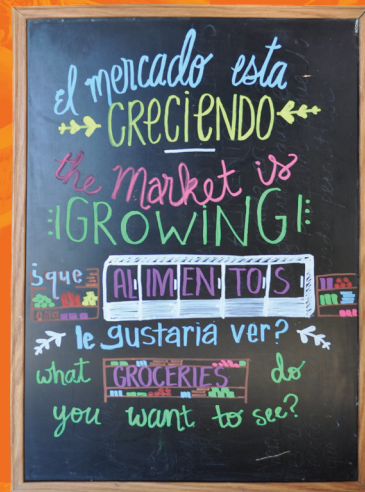 el mercado esta
CRECIENDO
the Market is
¡GROWING!
¿que ALIMENTOS
le gustaria ver?
what GROCERIES do
you want to see?